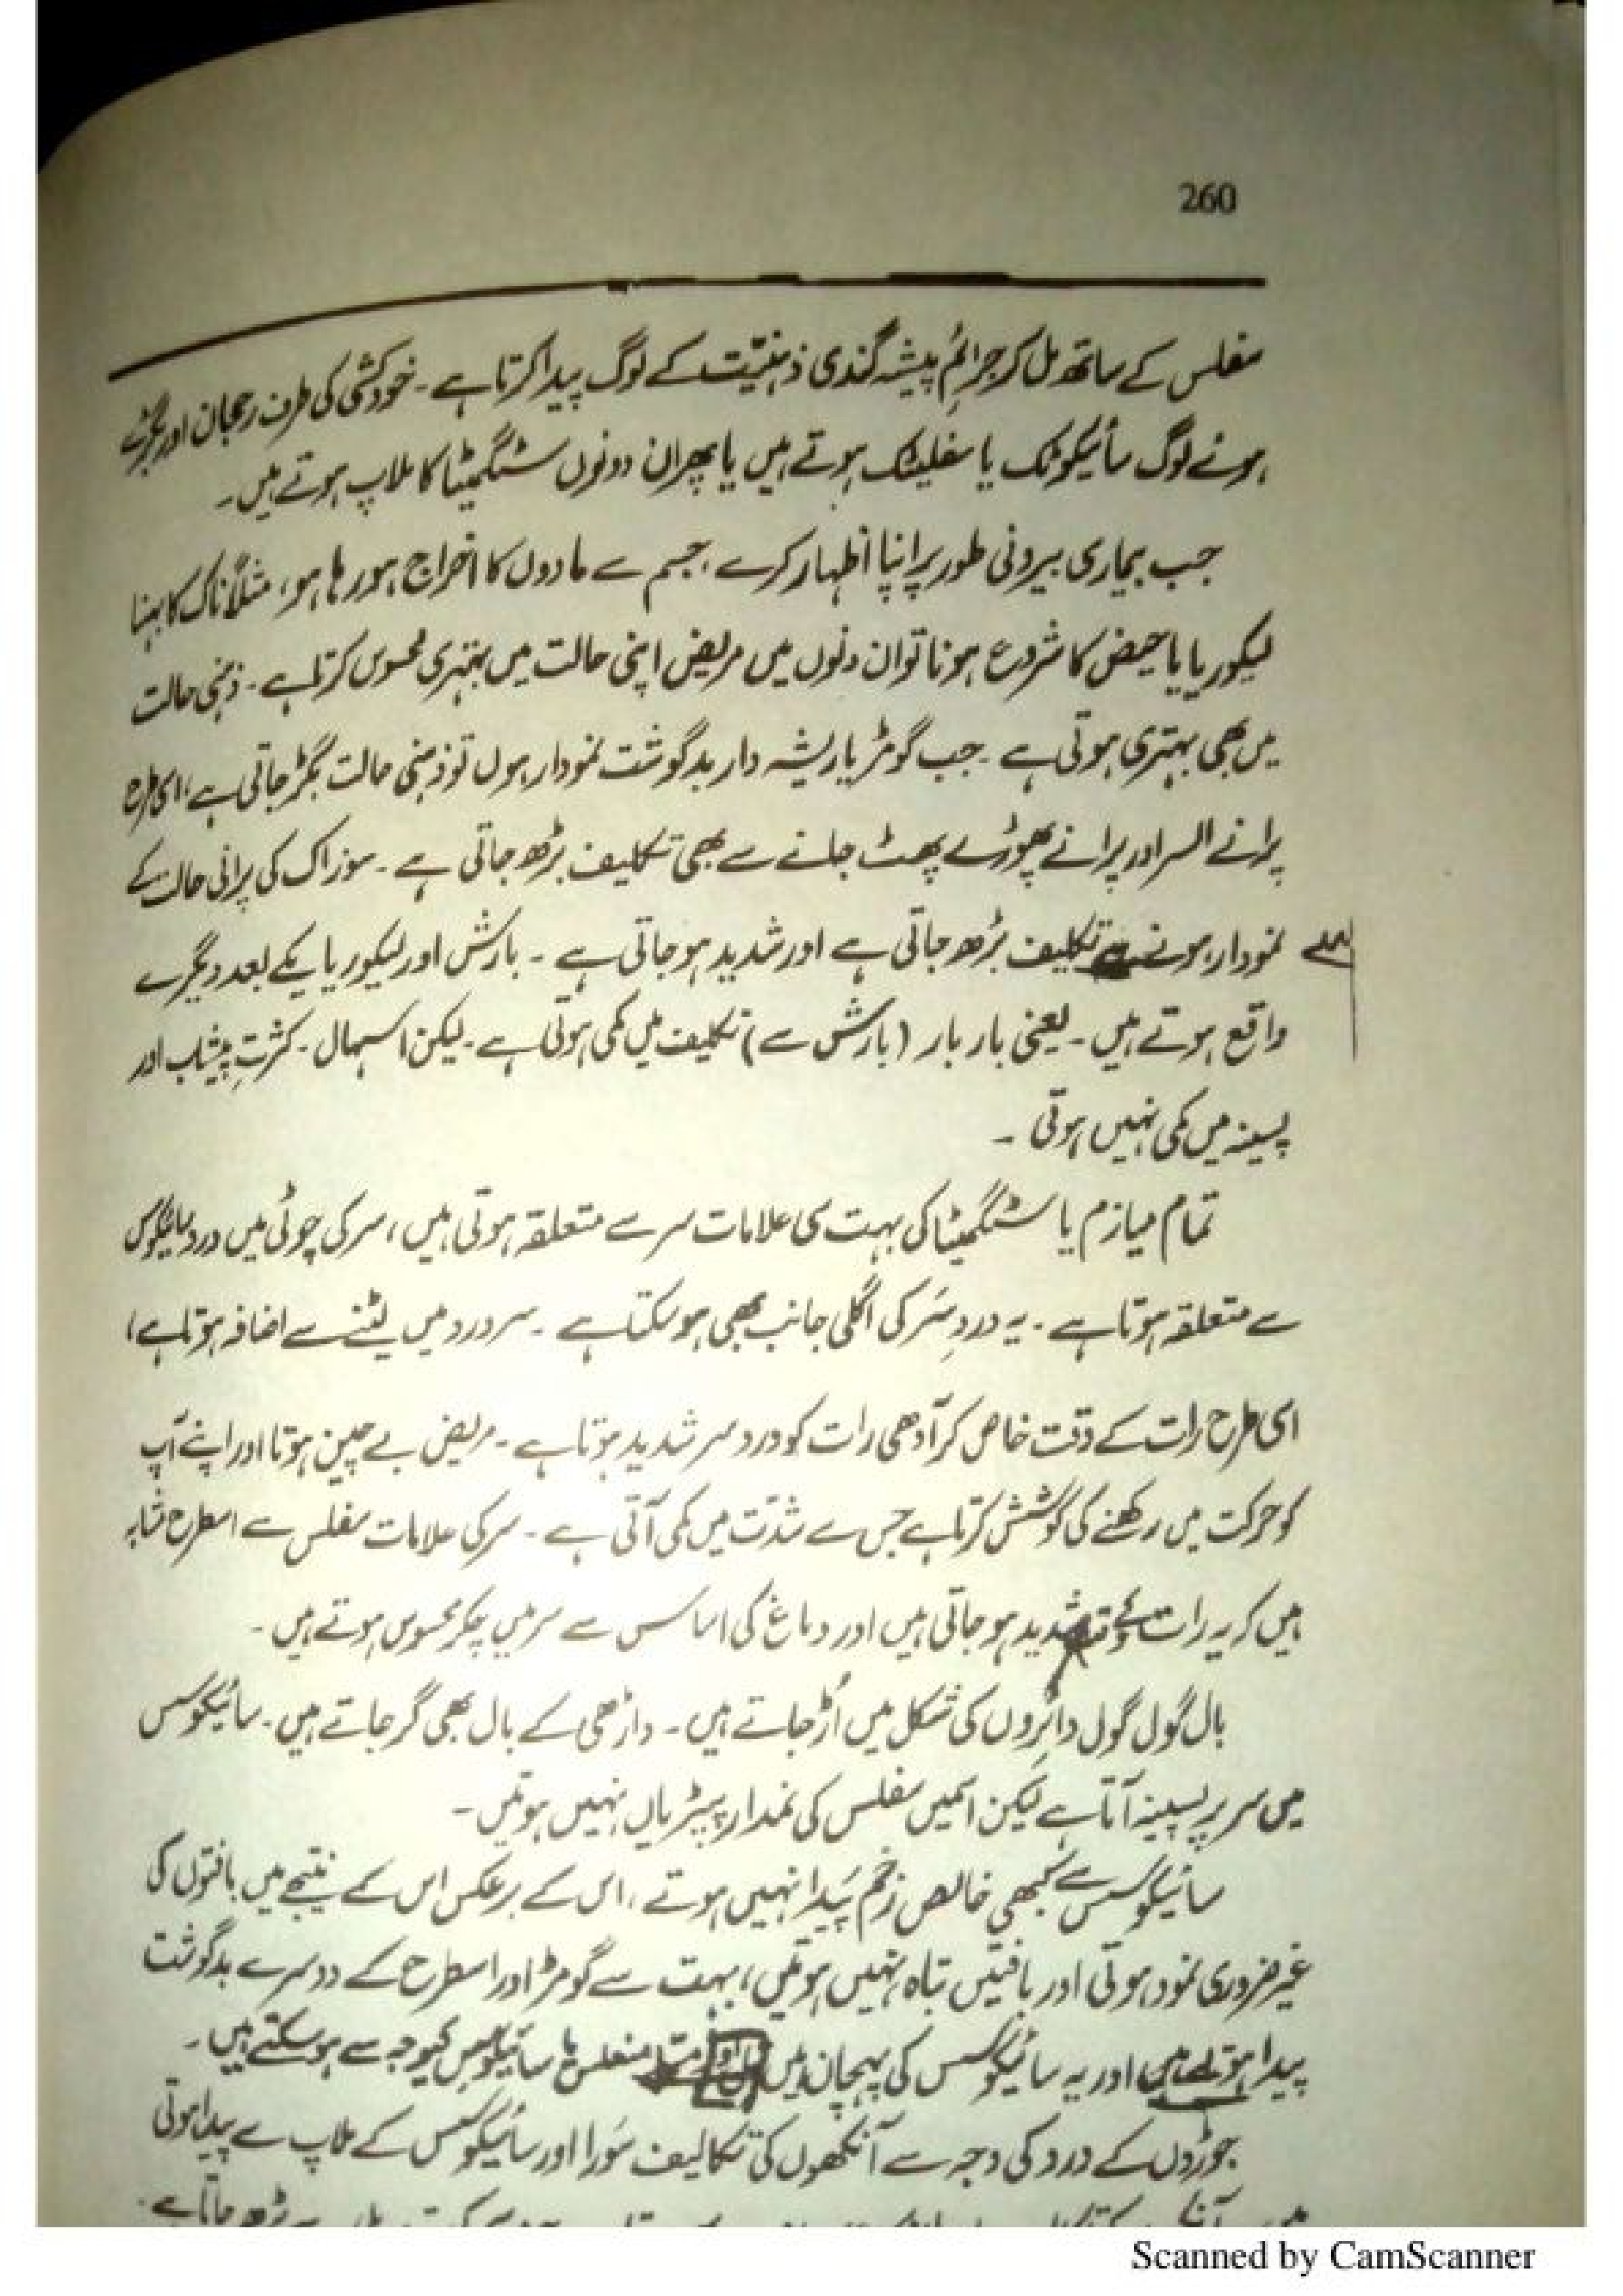 260
سفلس کے ساتھ مل کر جرائم پیشہ گندی ذہنیّت کے لوگ پیدا کرتا ہے۔ خودکشی کی طرف رجحان اور بگڑے
ہوئے لوگ سائیکوٹک یا سفلیٹک ہوتے ہیں یا پھر ان دونوں سٹگمیٹا کا ملاپ ہوتے ہیں۔
جب بیماری بیرونی طور پر اپنا اظہار کرے، جسم سے مادوں کا اخراج ہو رہا ہو، مثلاً ناک کا بہنا
لیکوریا یا حیض کا شروع ہونا تو ان دنوں میں مریض اپنی حالت میں بہتری محسوس کرتا ہے۔ ذہنی حالت
میں بھی بہتری ہوتی ہے۔ جب گومڑ یا ریشہ دار بدگوشت نمودار ہوں تو ذہنی حالت بگڑ جاتی ہے، اسی طرح
پرانے السر اور پرانے پھوڑے پھٹ جانے سے بھی تکلیف بڑھ جاتی ہے۔ سوزاک کی پرانی حالت کے
نمودار ہونے سے تکلیف بڑھ جاتی ہے اور شدید ہو جاتی ہے۔ بارش اور لیکوریا یکے بعد دیگرے
واقع ہوتے ہیں۔ یعنی بار بار (بارش سے) تکلیف میں کمی ہوتی ہے۔ لیکن اسہال۔ کثرتِ پیشاب اور
پسینہ میں کمی نہیں ہوتی۔
تمام میازم یا سٹگمیٹا کی بہت سی علامات سر سے متعلقہ ہوتی ہیں، سر کی چوٹی میں درد سائیکوسس
سے متعلقہ ہوتا ہے۔ یہ دردِ سَر کی اگلی جانب بھی ہو سکتا ہے۔ سر درد میں لیٹنے سے اضافہ ہوتا ہے،
اسی طرح رات کے وقت خاص کر آدھی رات کو درد سر شدید ہوتا ہے۔ مریض بے چین ہوتا اور اپنے آپ
کو حرکت میں رکھنے کی کوشش کرتا ہے جس سے شدّت میں کمی آتی ہے۔ سر کی علامات سفلس سے اسطرح مشابہ
ہیں کہ یہ رات کے وقت شدید ہو جاتی ہیں اور دماغ کی اساس سے سر میں چکر محسوس ہوتے ہیں۔
بال گول گول دائروں کی شکل میں اُڑ جاتے ہیں۔ داڑھی کے بال بھی گر جاتے ہیں۔ سائیکوسس
میں سر پر پسینہ آتا ہے لیکن اسمیں سفلس کی نمدار پیپڑیاں نہیں ہوتیں۔
سائیکوسس سے کبھی خالص زخم پَیدا نہیں ہوتے، اس کے برعکس اس کے نتیجے میں بافتوں کی
غیر ضروری نمود ہوتی اور بافتیں تباہ نہیں ہوتیں، بہت سے گومڑ اور اسطرح کے دوسرے بدگوشت
پیدا ہوتے ہیں اور یہ سائیکوسس کی پہچان ہیں سفلس یا سائیکوسس کیوجہ سے ہو سکتے ہیں۔
جوڑوں کے درد کی وجہ سے آنکھوں کی تکالیف سَورا اور سائیکوسس کے ملاپ سے پیدا ہوتی